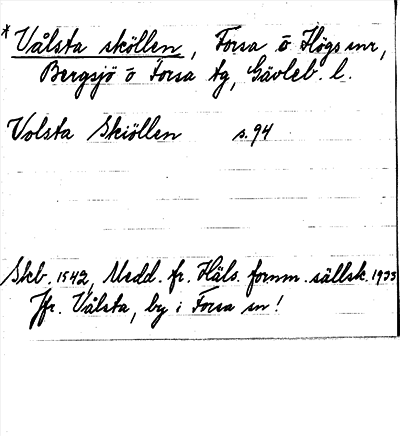 * Vålsta sköllen, Forsa o Högs snr,
Bergsjö o Forsa tg, Gävleb. l.
Volsta Skiöllen s. 94
Skb. 1542, Medd. fr. Häls. fornm. sällsk. 1935
Jfr. Vålsta, by i Forsa sn!